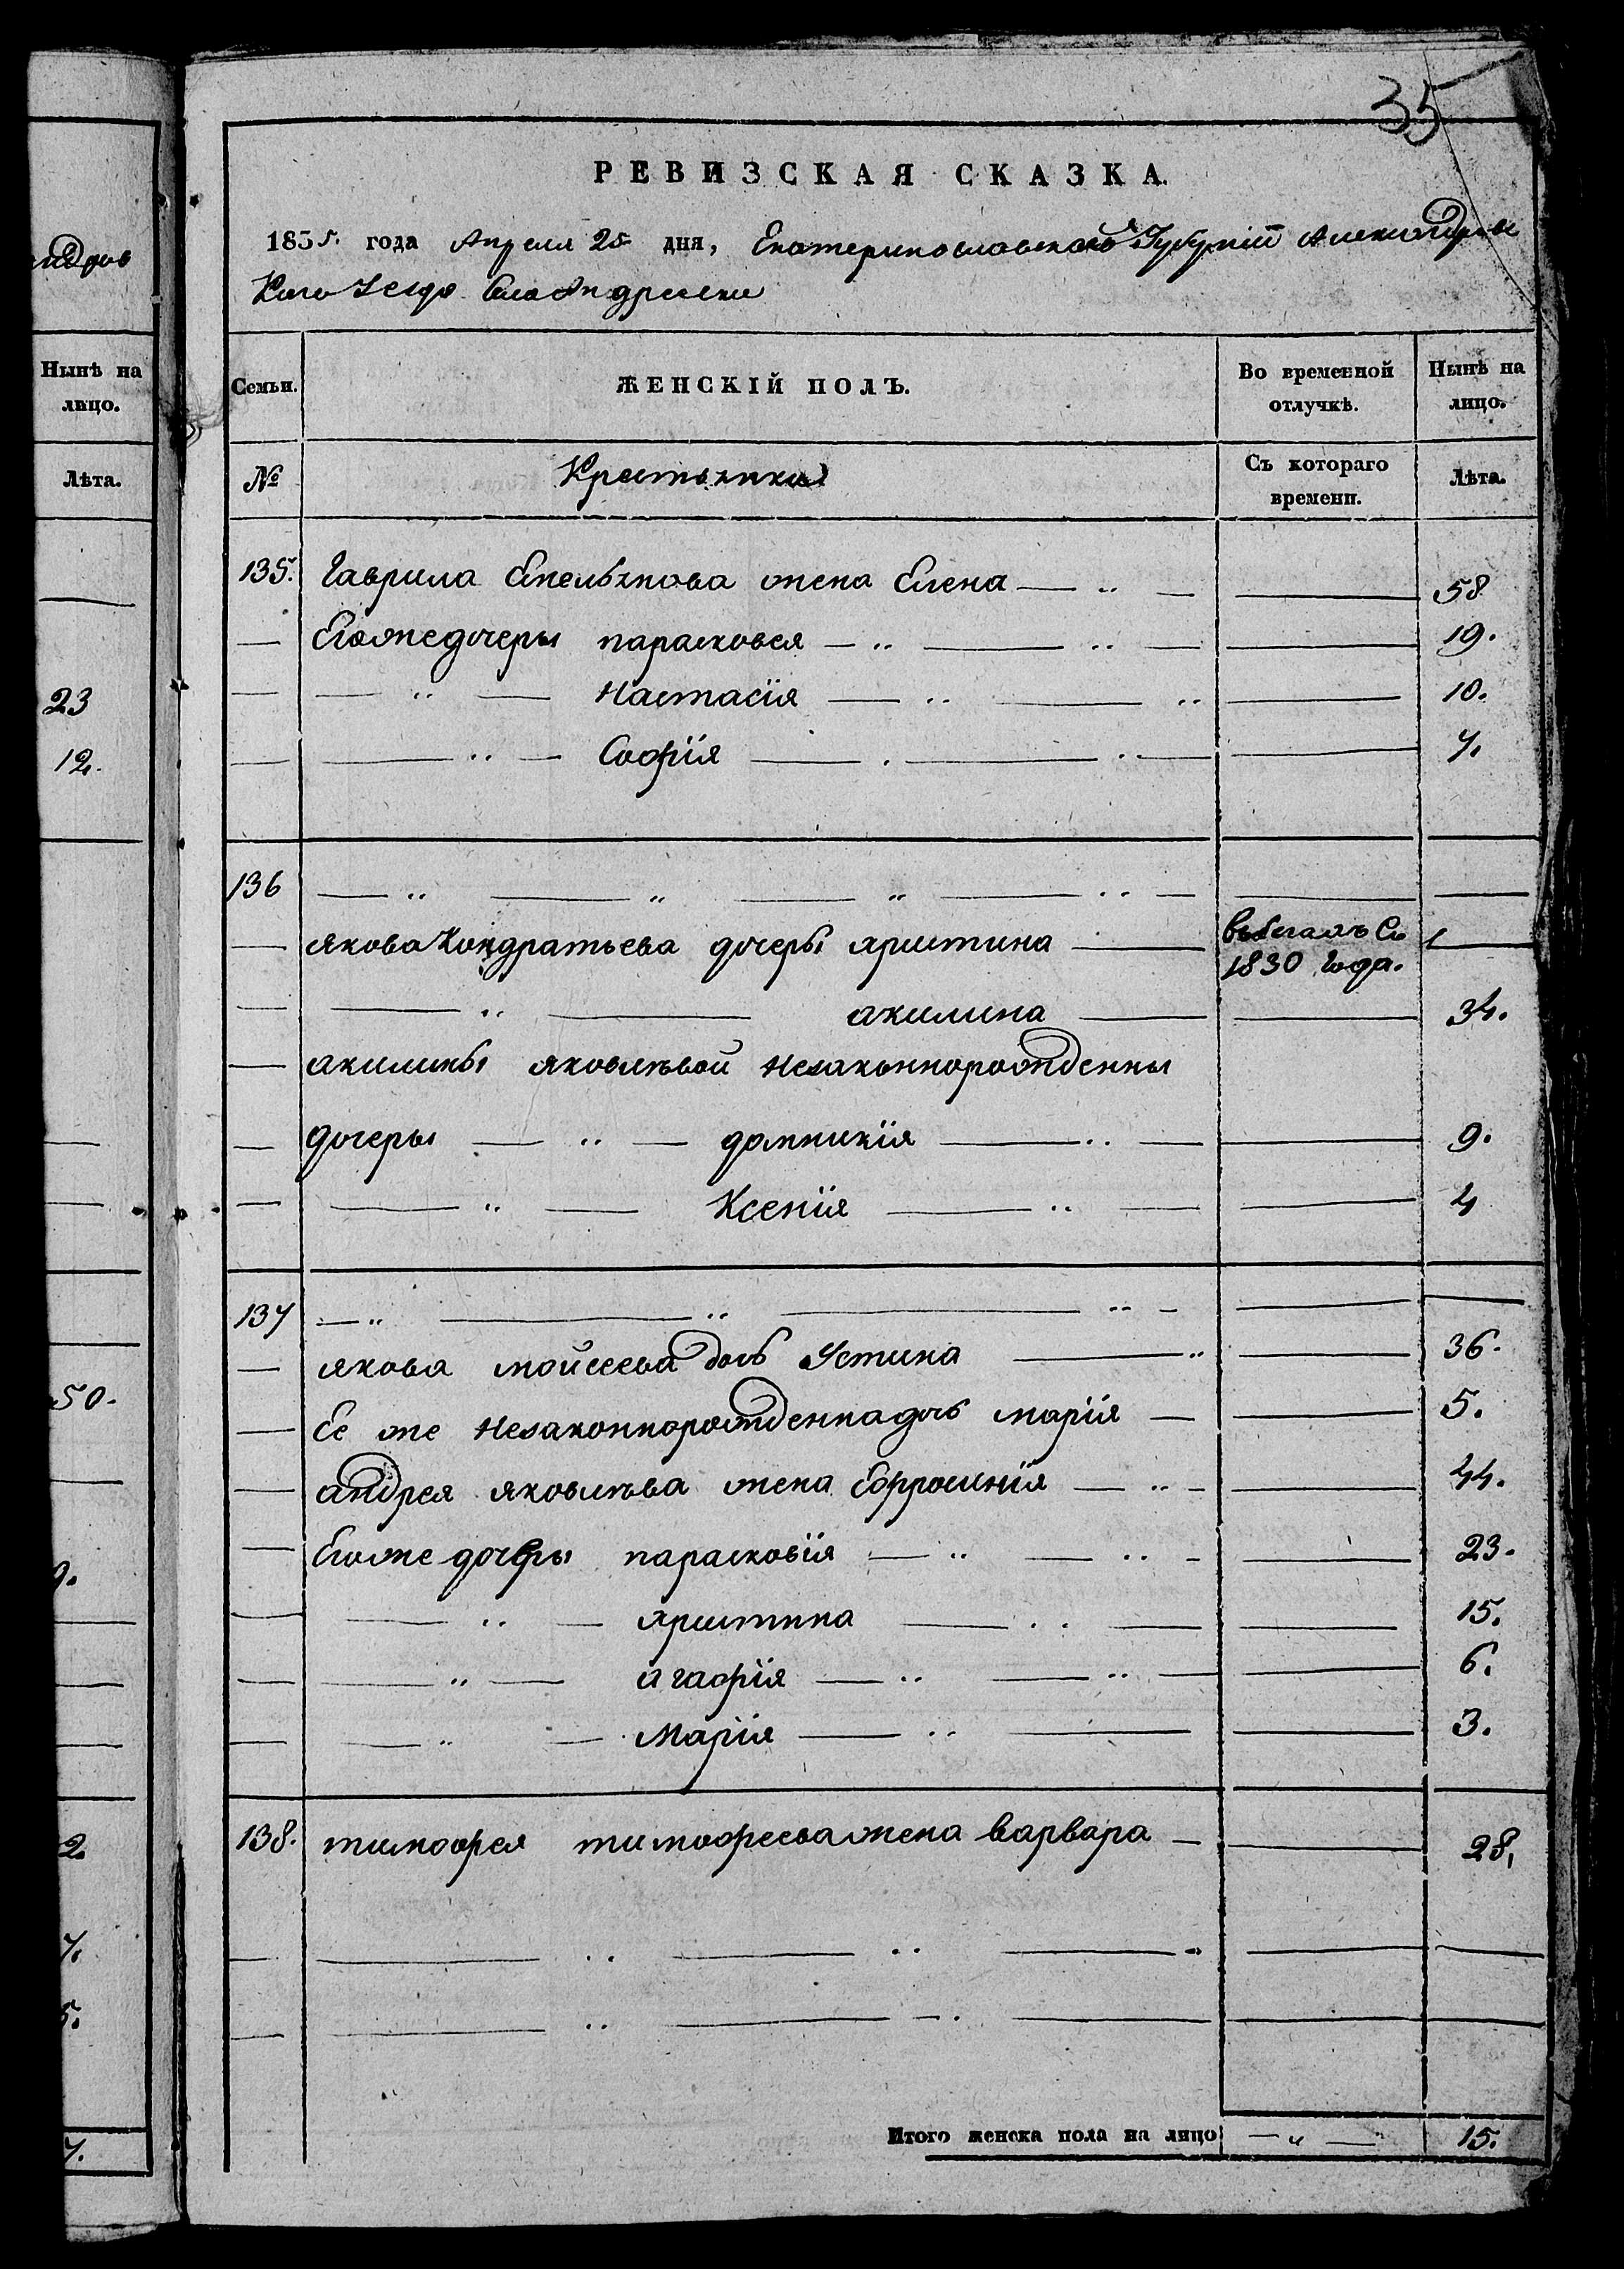 35
РЕВИЗСКАЯ СКАЗКА.
1835. года Апреля 25 дня, Екатеринославской Губерніи Александровс
Каго Уезда Села Андреевки
ндров
Нынѣ на лицо.
Лѣта.
23
12.
50.
9.
2.
7.
5.
7.
Семьи. ЖЕНСКІЙ ПОЛЪ. Во временной отлучкѣ. Нынѣ на лицо.
№ Крестьянки Съ котораго времени. Лѣта.
135. Гаврила Емельянова жена Елена 58
Егоже дочеры парасковея 19.
Настасія 10.
Софія 7.
136
якова Кондратьева дочеры христина въ бегахъ Съ 1830 года.
акилина 34.
акилины яковлѣвой Незаконнорожденны
дочеры домникія 9.
Ксенія 4
137
якова мойсеева дочь Устина 36.
Ее же Незаконнорожденна дочь марія 5.
андрея яковлѣва жена Ефросинія 44.
Егоже дочеры парасковія 23.
христина 15.
агафія 6.
Марія 3.
138. тимофея тимофеева жена варвара 28,
Итого женска пола на лицо 15.